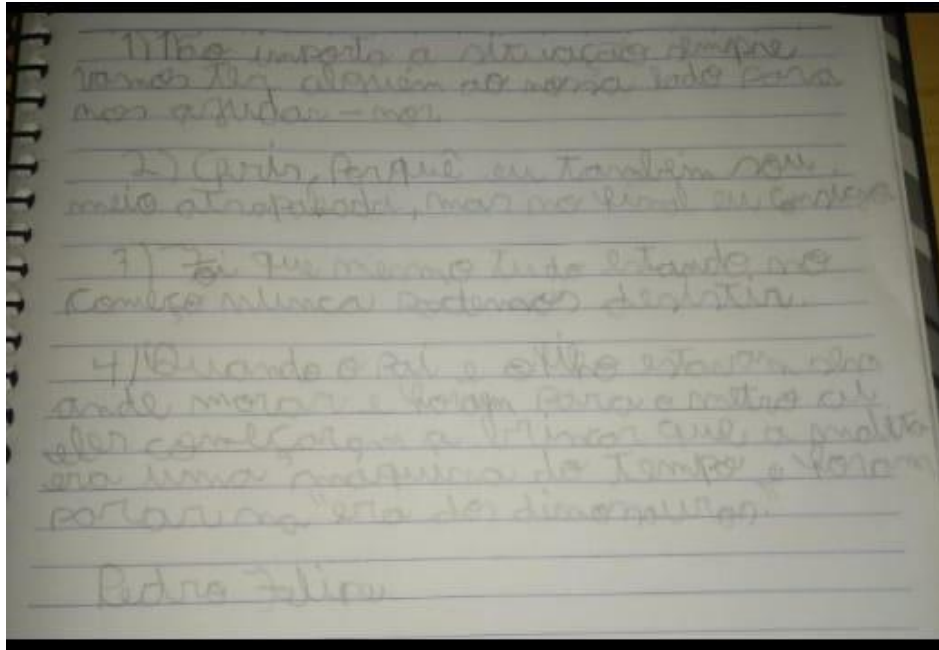 1) Não importa a situação sempre
vamos ter alguém ao nosso lado para
nos ajudar-nos.
2) Porquê eu também sou
meio atrapalhada, mas no final eu consigo
3) Foi que mesmo tudo estando no
começo nunca podemos desistir.
4) Quando o pai e o filho estavam sem
onde morar e foram para o metro aí
eles começaram a brincar que a
era uma máquina do tempo e foram
parar na "era dos dinossauros."
Pedro Felipe